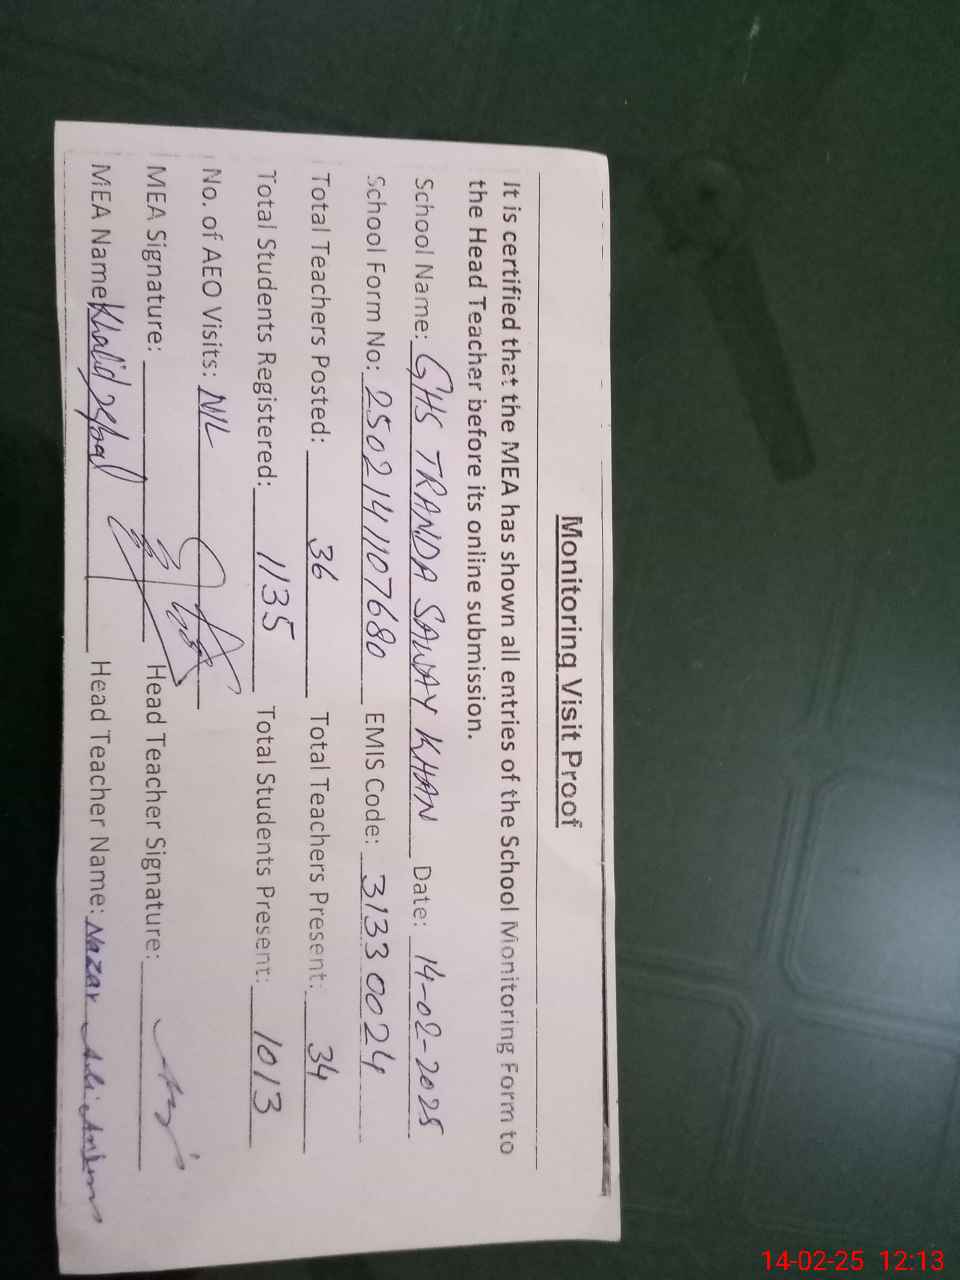 Monitoring Visit Proof
It is certified that the MEA has shown all entries of the School Monitoring Form to
the Head Teacher before its online submission.
School Name: GHS TRANDA SAWAY KHAN Date: 14-02-2025
School Form No: 250214107680 EMIS Code: 31330024
Total Teachers Posted: 36 Total Teachers Present: 34
Total Students Registered: 1135 Total Students Present: 1013
No. of AEO Visits: NIL
MEA Signature: Head Teacher Signature:
MEA Name: Khalid Iqbal Head Teacher Name: Nazar
14-02-25 12:13